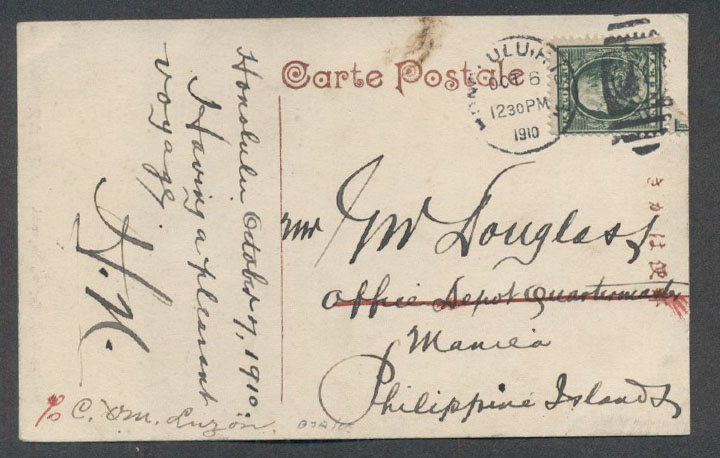 Carte Postale
HONOLULU, H.T.
OCT 6
1230 PM
1910
Honolulu October 7, 1910.
Having a pleasant
voyage,
H. N.
Mr
Mr Douglass
Office Depot Quartermaster
Manila
Philippine Islands
きかは便
C. Q.M. Luzon.